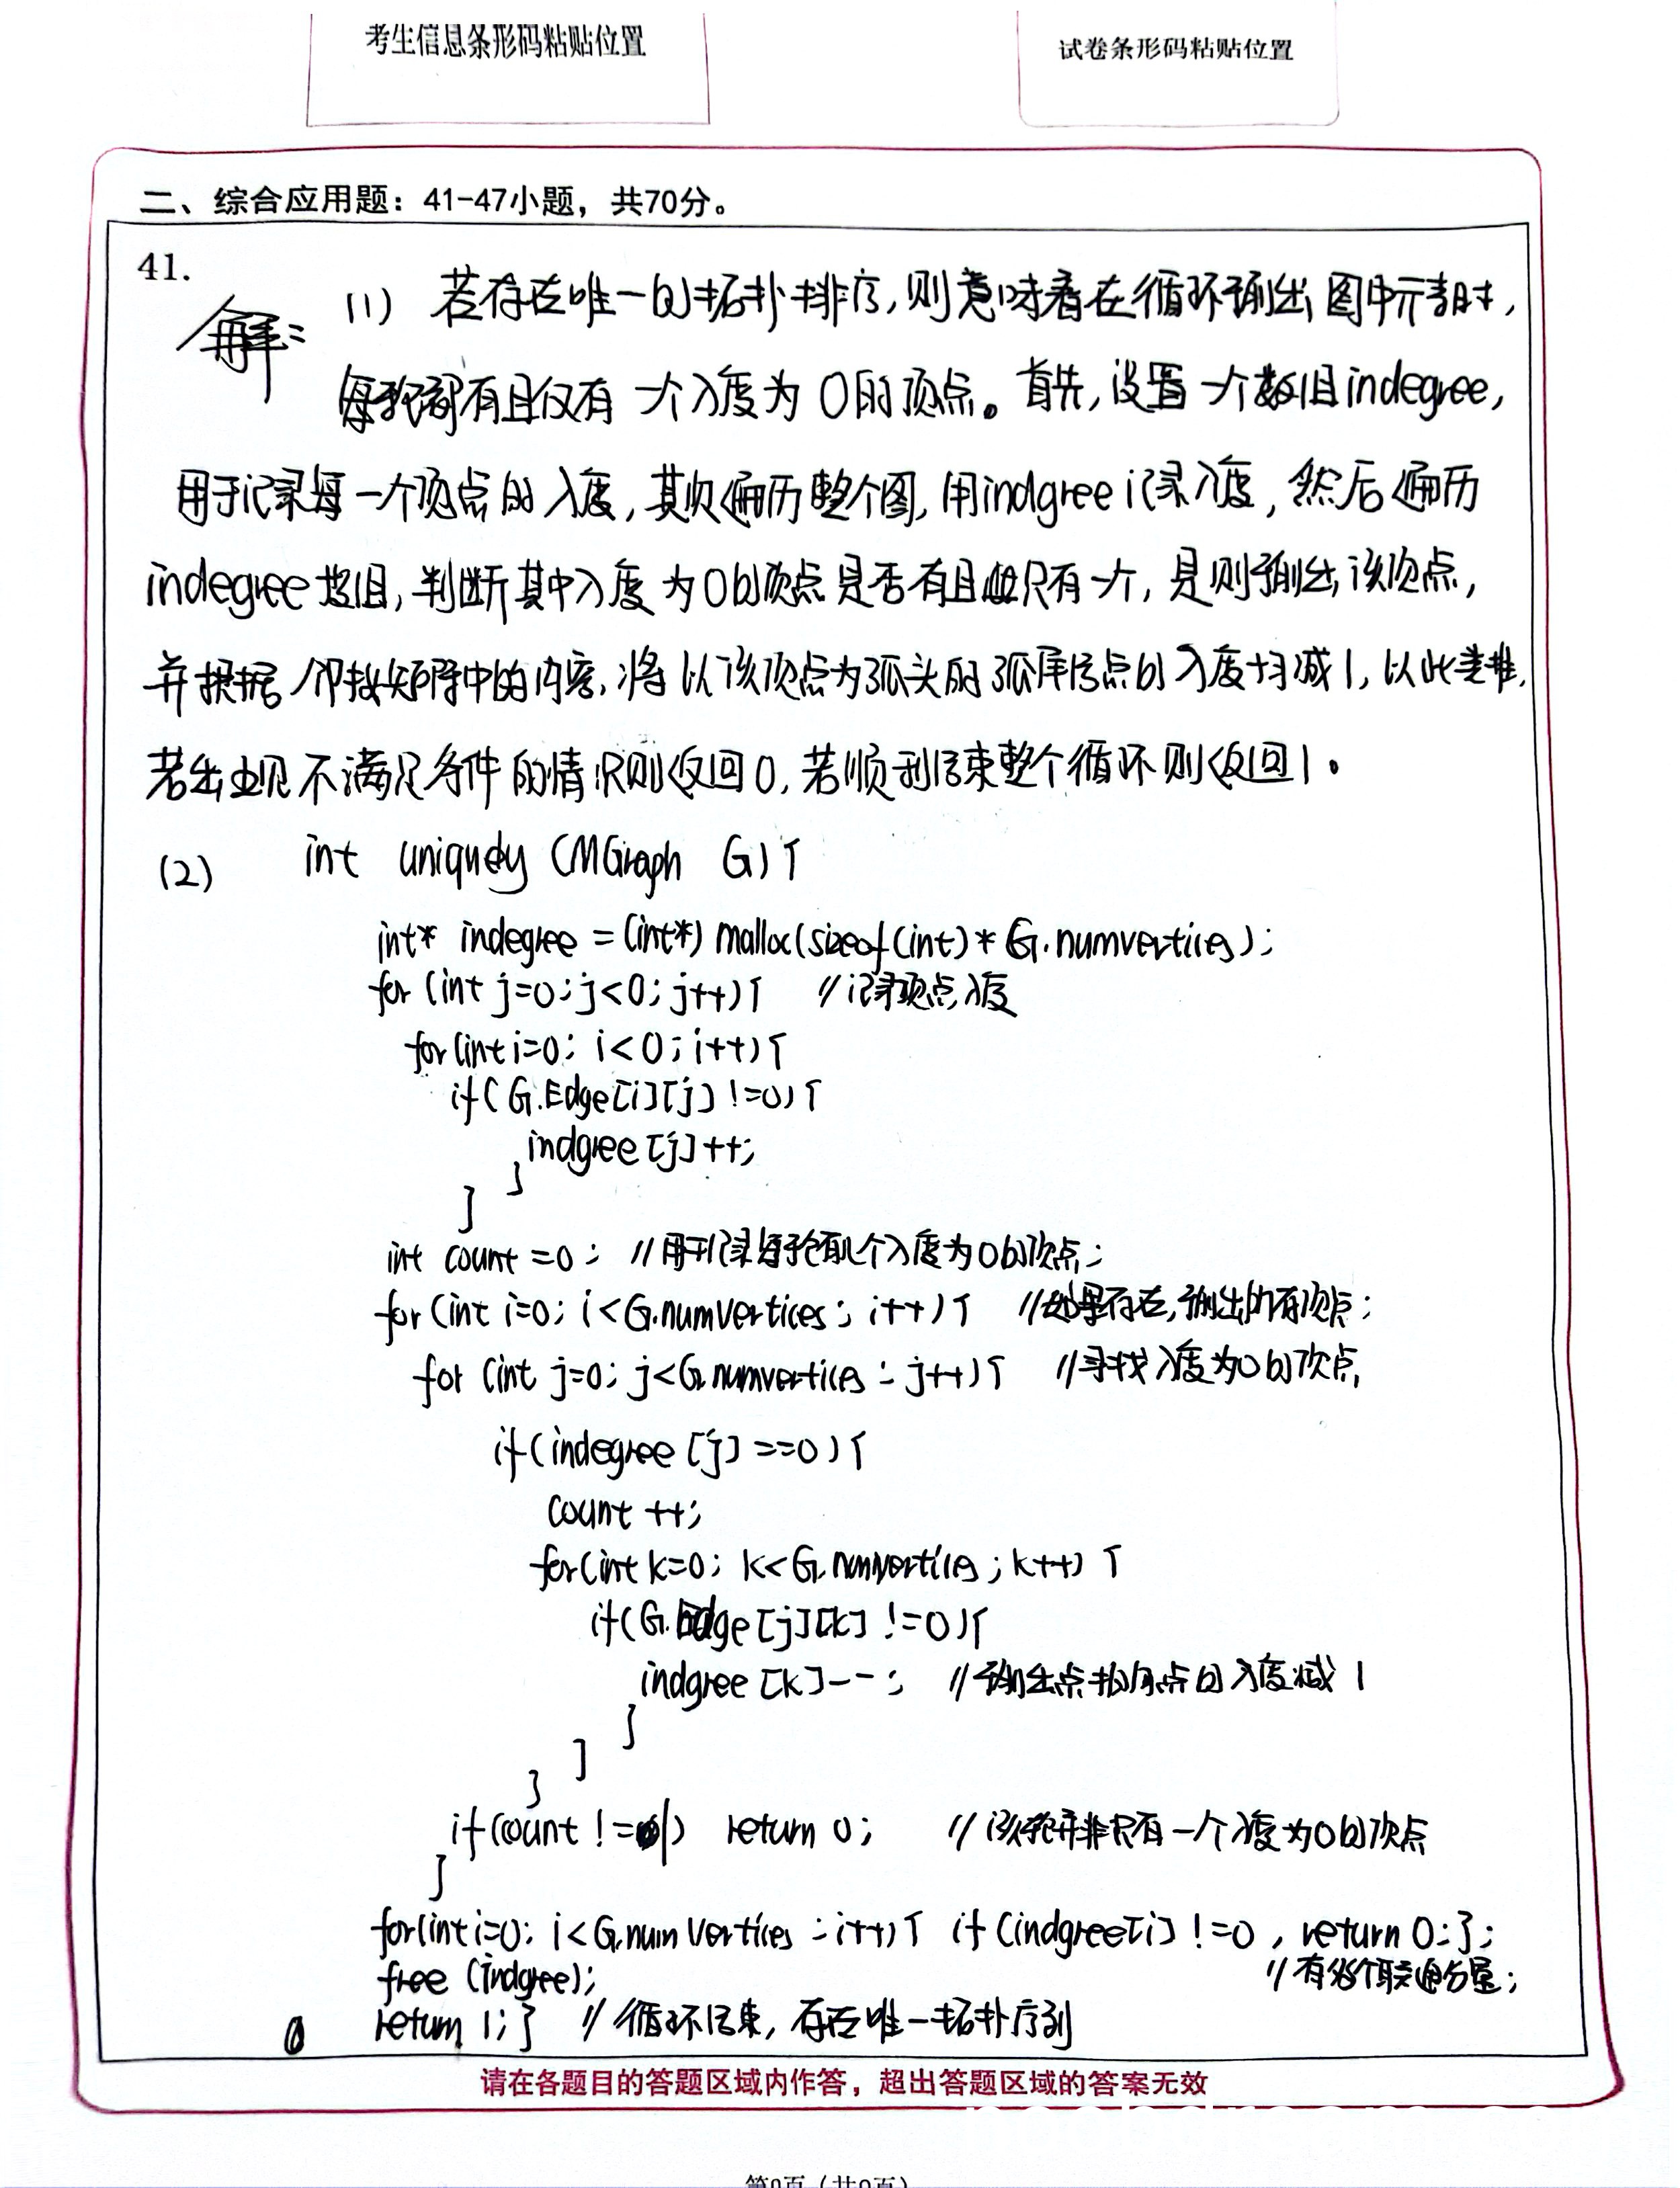 考生信息条形码粘贴位置
试卷条形码粘贴位置
二、综合应用题：41-47小题，共70分。
41.
解： (1) 若存在唯一的拓扑排序，则意味着在循环输出图中元素时，
每轮都有且仅有一个入度为0的顶点。首先，设置一个数组indegree，
用于记录每一个顶点的入度，其次遍历整个图，用indgree记录入度，然后遍历
indegree数组，判断其中入度为0的顶点是否有且只有一个，是则输出该顶点，
并根据邻接矩阵中的内容，将以该顶点为弧头的弧尾结点的入度均减1，以此类推，
若出现不满足条件的情况则返回0，若顺利结束整个循环则返回1。
(2) int uniquely (MGraph G){
int* indegree = (int*) malloc(sizeof(int)* G.numvertices);
for (int j=0; j<0; j++){ //记录顶点入度
for(int i=0; i<0; i++){
if(G.Edge[i][j] !=0){
indgree[j]++;
}
}
int count =0; //用于记录每轮有几个入度为0的顶点;
for (int i=0; i<G.numVertices; i++){ //如果存在,输出所有顶点;
for (int j=0; j<G.numvertices; j++){ //寻找入度为0的顶点
if(indegree[j] ==0){
count ++;
for(int k=0; k<G.numvertices; k++) {
if(G.Edge[j][k] !=0){
indgree[k]--; //输出点指向点的入度减1
}
}
}
if(count !=1) return 0; //该轮并非只有一个入度为0的顶点
}
for(int i=0; i<G.numVertices; i++){ if(indgree[i] !=0, return 0;};
free (indgree); //有多个联通分量;
return 1;} //循环结束，存在唯一拓扑序列
请在各题目的答题区域内作答，超出答题区域的答案无效